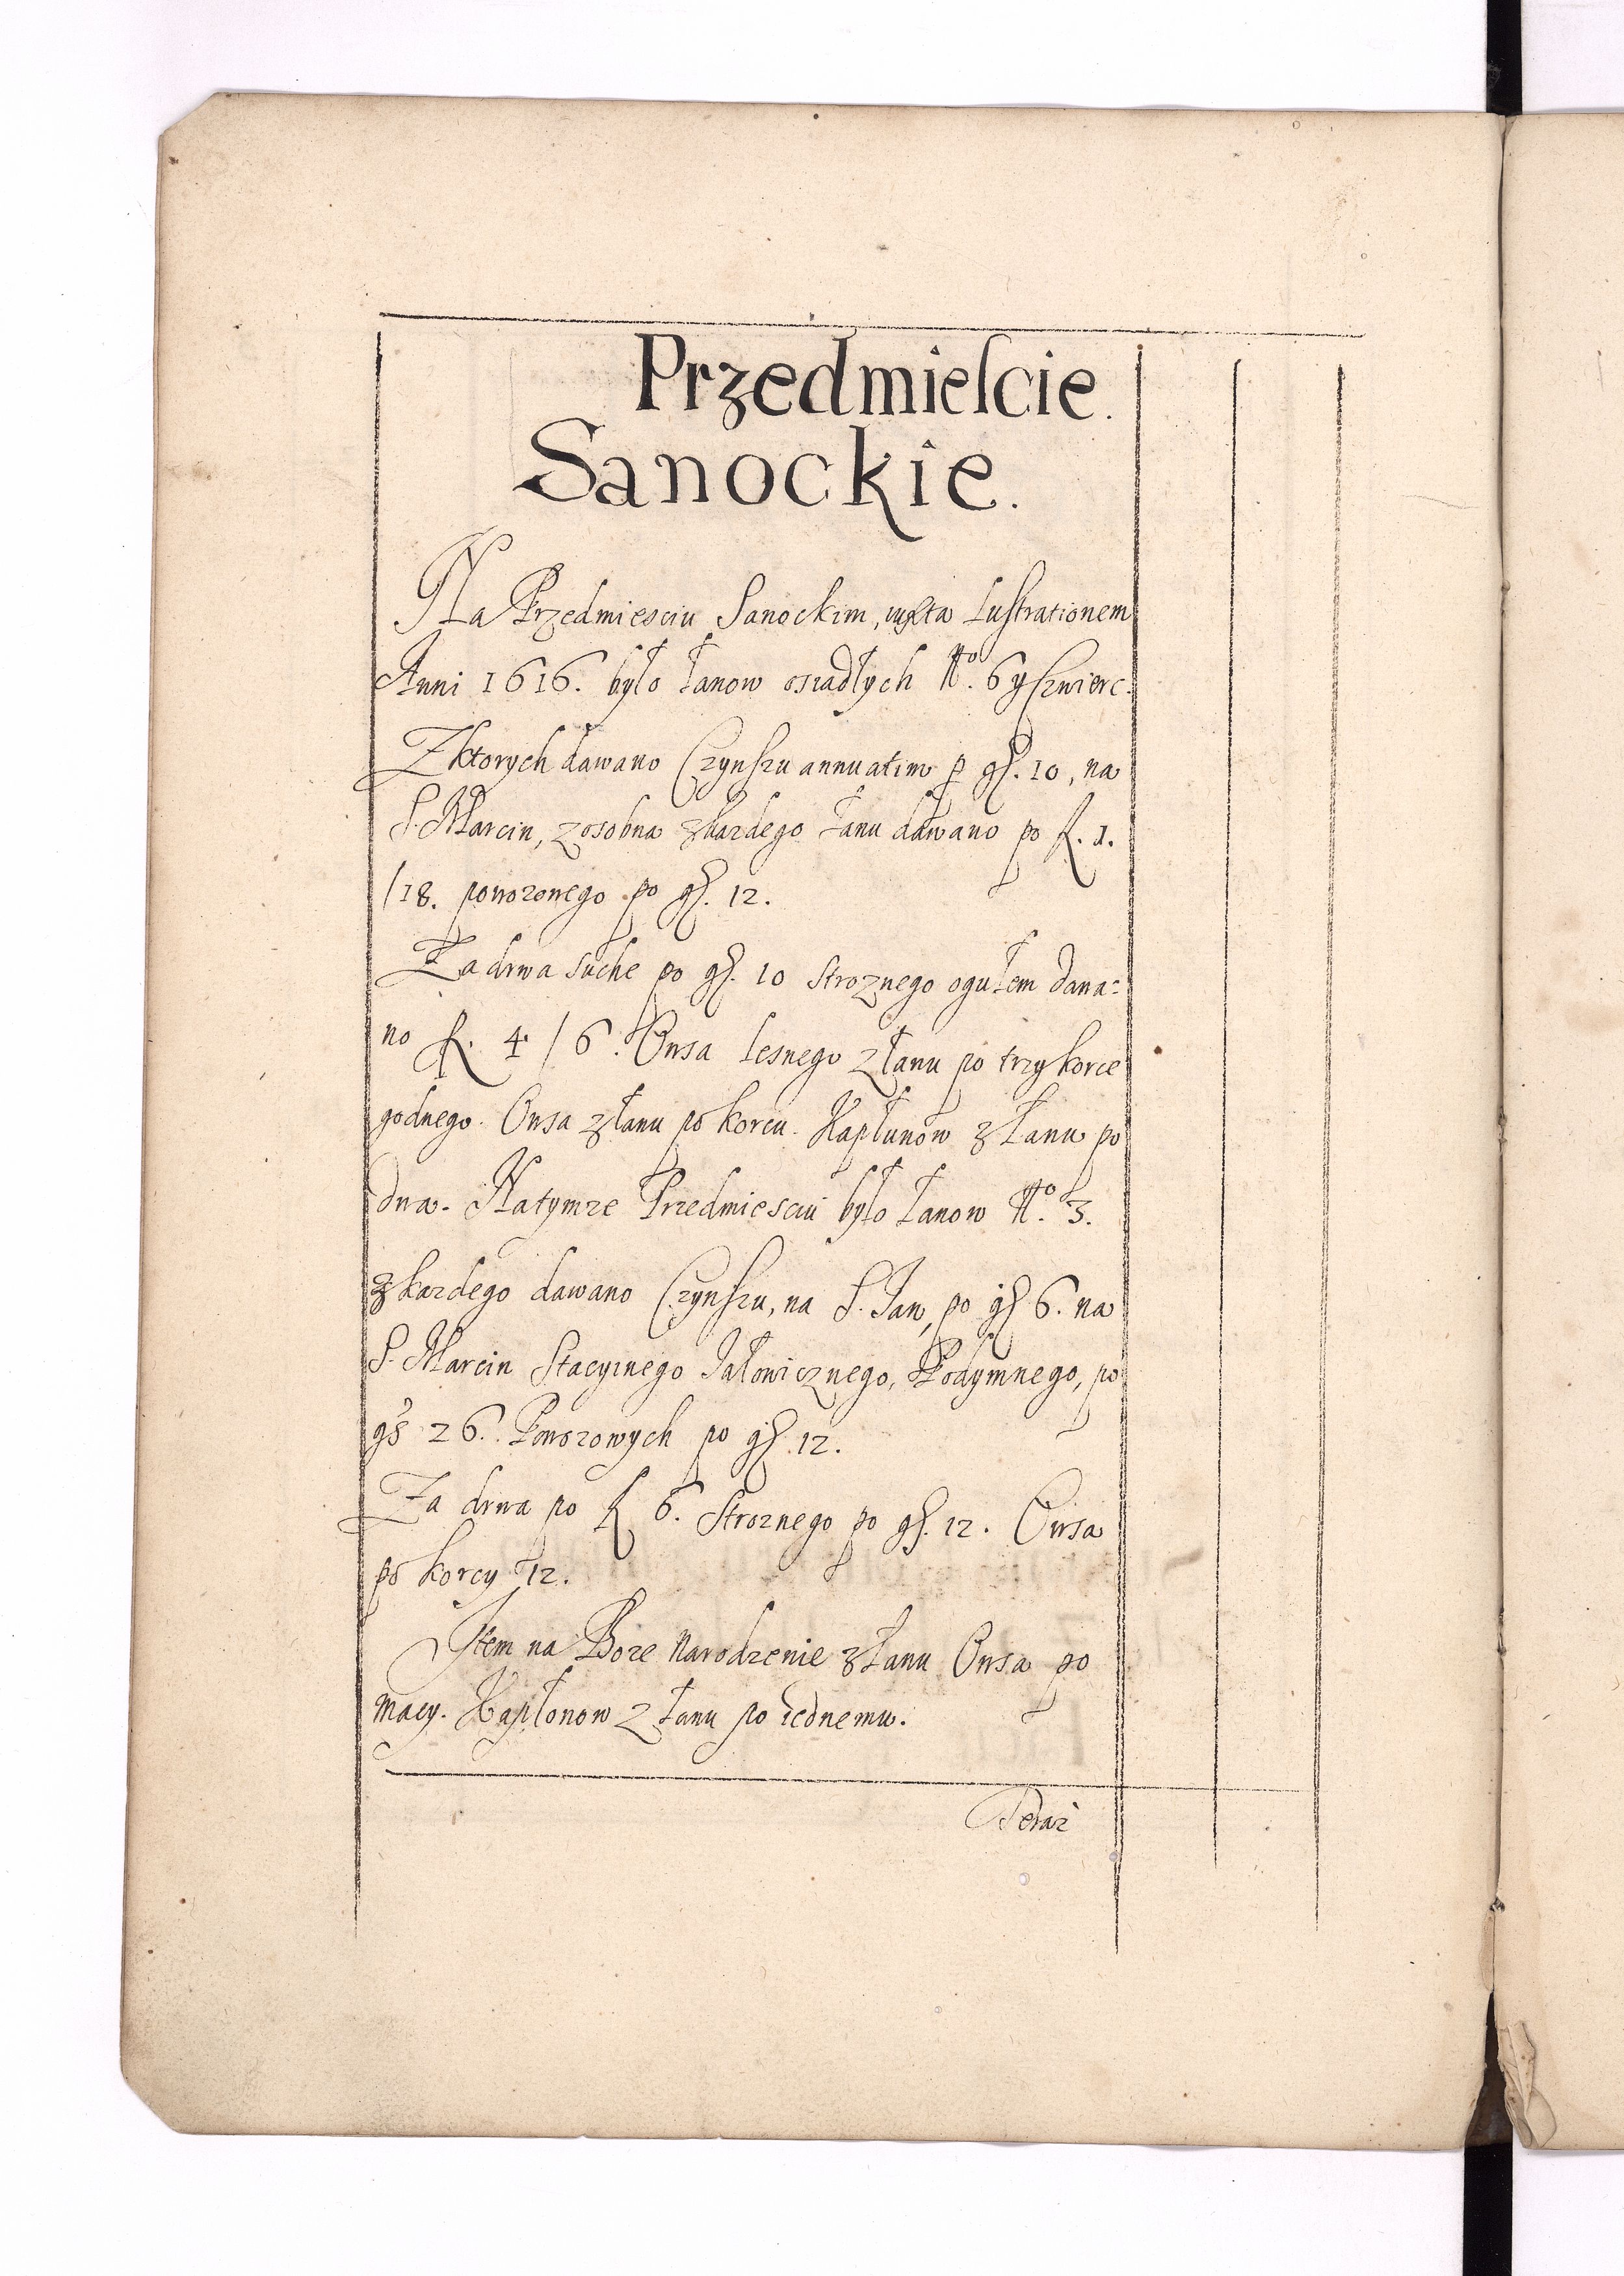 Przedmieſcie.
Sanockie.
Na Przedmiesciu Sanockim, iuxta Luſtrationem
Anni 1616. było łanow osiadłych No. 6 y Czwierc.
Zktorych dawano Czynſzu annuatim p gſ. 10, na
S. Marcin, zosobna zkazdego łanu dawano po fl. 1.
/18. powozowego po gſ. 12.
Za drwa suche po gſ. 10 Stroznego ogułem dawa=
no fl. 4 / 6. Owsa lesnego złanu po trzy korce
godnego. Owsa złanu po korcu. Kapłunow z łanu po
dwa. Natymze Przedmiesciu było łanow No. 3.
zkazdego dawano Czynſzu, na S. Jan, po gſ 6. na
S. Marcin Stacyinego Jałowicznego, Podymnego, po
gs 26. Powozowych po gſ. 12.
Za drwa po fl 6. Stroznego po gſ. 12. Owsa
po korcy 12.
Item na Boze Narodzenie z łanu Owsa po
macy. Kapłonow z łanu po iednemu.
Teraz